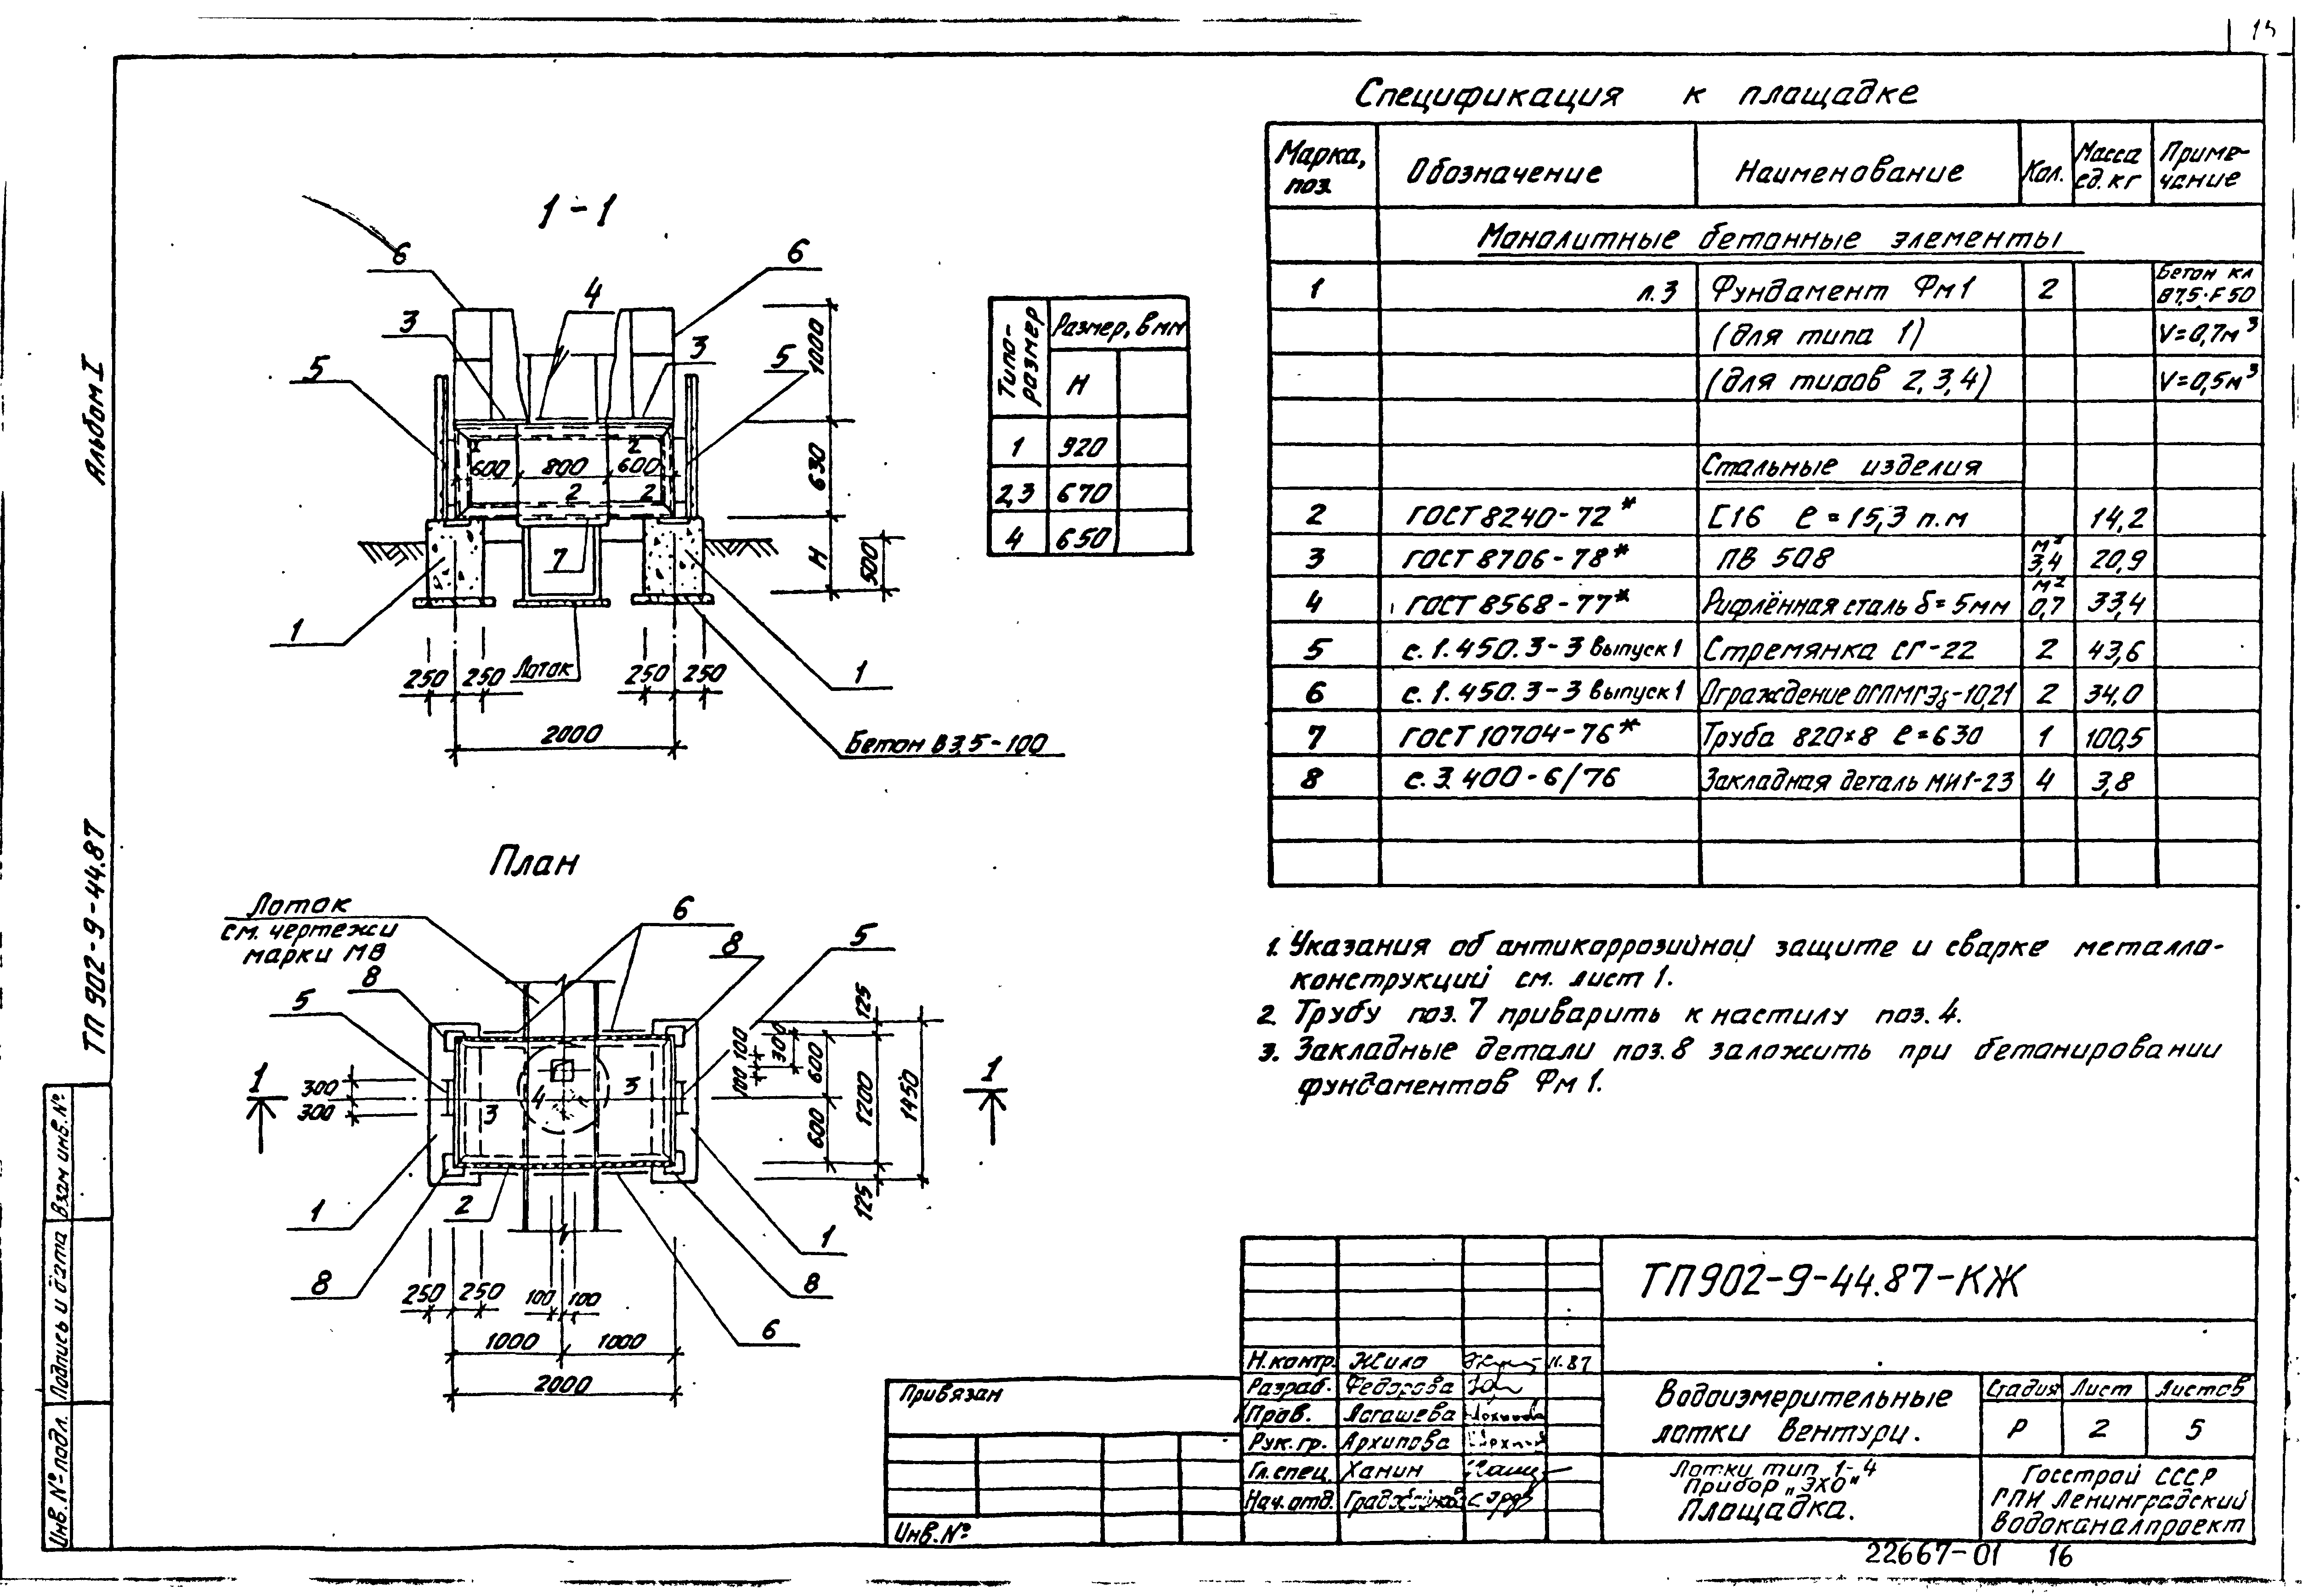 15
Альбом I
ТП 902-9-44.87
Взам инв.№
Подпись и дата
Инв.№подл.
1-1
6
6
4
3
3
5
5
1000
630
Н
500
2
2
600 800 600
2 2
7
1
1
250 250
Лоток
250 250
2000
Бетон В3,5-100
Типо-размер
Размер, в мм
Н
1 920
2,3 670
4 650
План
Лоток
см. чертежи
марки МВ
6
8
5
8
5
125
100 100
300
600
1200
1450
600
125
1
1
300
300
3 4 3
1
2
1
8
8
250 250
100 100
6
1000 1000
2000
Спецификация к площадке
Марка, поз. Обозначение Наименование Кол. Масса ед.кг Приме-чание
Монолитные бетонные элементы
1 л.3 Фундамент Фм1 2 Бетон кл В7,5·F50
(для типа 1) V=0,7м³
(для типов 2,3,4) V=0,5м³
Стальные изделия
2 ГОСТ 8240-72* [16 ℓ=15,3 п.м 14,2
3 ГОСТ 8706-78* ПВ 508 м² 3,4 20,9
4 ГОСТ 8568-77* Рифлённая сталь δ=5мм м² 0,7 33,4
5 с.1.450.3-3 Выпуск 1 Стремянка СГ-22 2 43,6
6 с.1.450.3-3 Выпуск 1 Ограждение ОГПМГЭб-10,21 2 34,0
7 ГОСТ 10704-76* Труба 820×8 ℓ=630 1 100,5
8 с.3.400-6/76 Закладная деталь МИ1-23 4 3,8
1. Указания об антикоррозийной защите и сварке металло-
конструкций см. лист 1.
2. Трубу поз.7 приварить к настилу поз.4.
3. Закладные детали поз.8 заложить при бетонировании
фундаментов Фм 1.
ТП902-9-44.87-КЖ
Н.контр. Жило 11.87
Разраб. Федорова
Пров. Логашева
Рук.гр. Архипова
Гл.спец. Ханин
Нач.отд.
Привязан
Инв.№
Водоизмерительные
лотки Вентури.
Стадия Лист Листов
Р 2 5
Лотки тип 1-4
Прибор „ЭХО"
Площадка.
Госстрой СССР
ГПИ Ленинградский
Водоканалпроект
22667-01 16